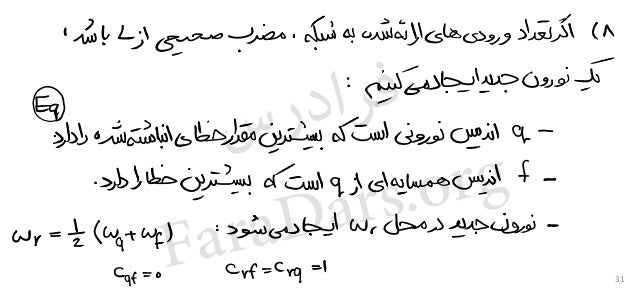 ۸) اگر تعداد ورودی های ارائه شده به شبکه، مضرب صحیحی از L باشد،
یک نورون جدید ایجاد می کنیم :
Eq
– q اندیس نورونی است که بیشترین مقدار خطای انباشته شده را دارد
– f اندیس همسایه ای از q است که بیشترین خطا را دارد.
– نورون جدید در محل wr ایجاد می شود : wr = 1/2 (wq + wf)
cqf = 0 crf = crq = 1
فرادرس
FaraDars.org
31